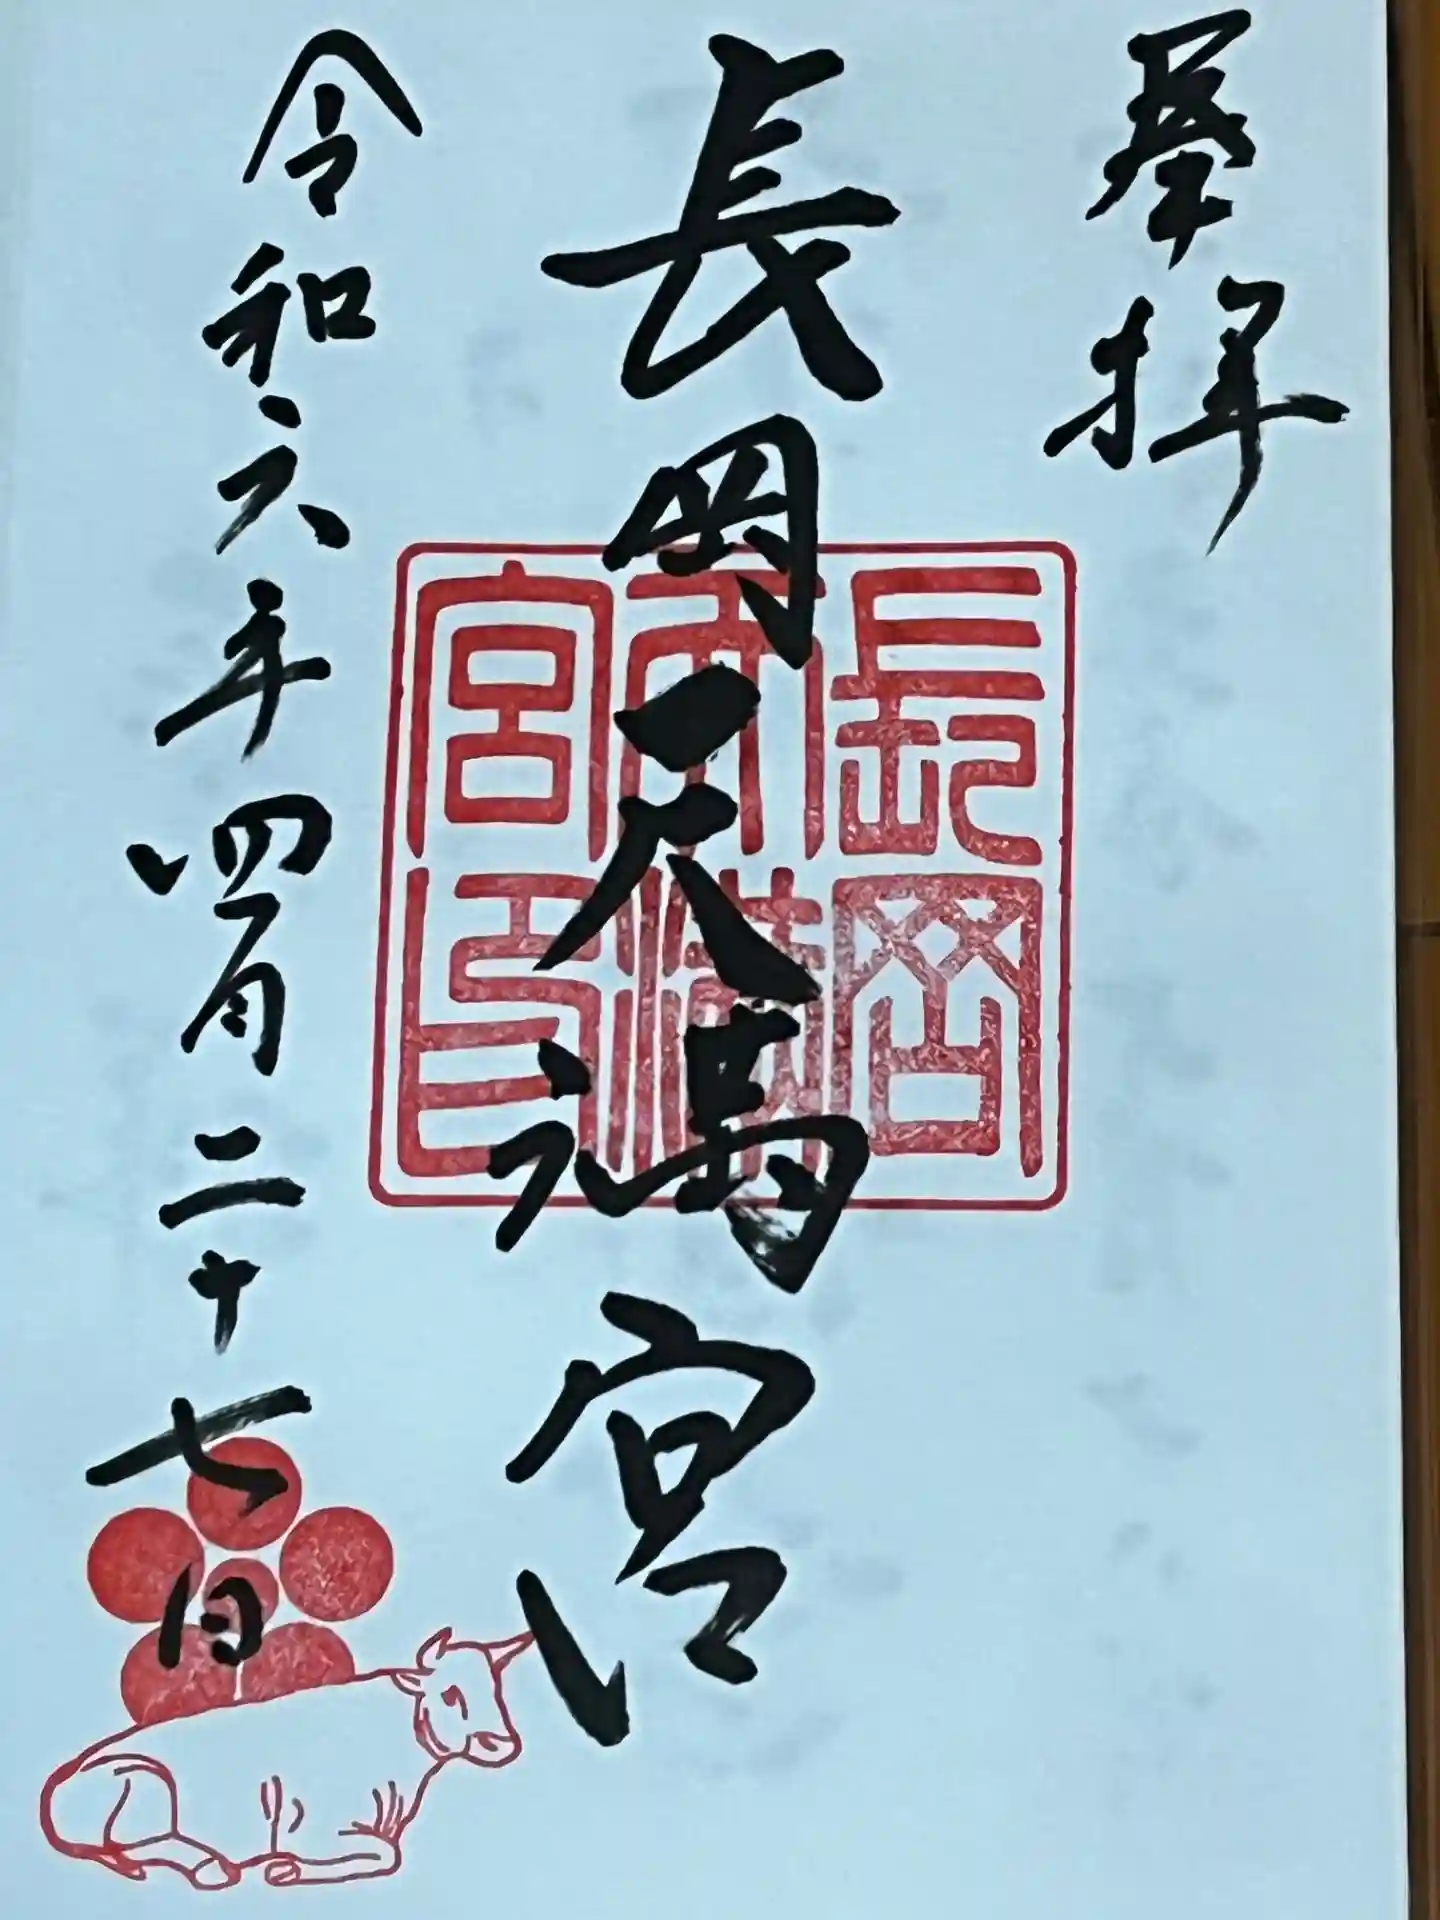 奉拝
長岡天満宮
長岡天満宮印
令和六年四月二十七日